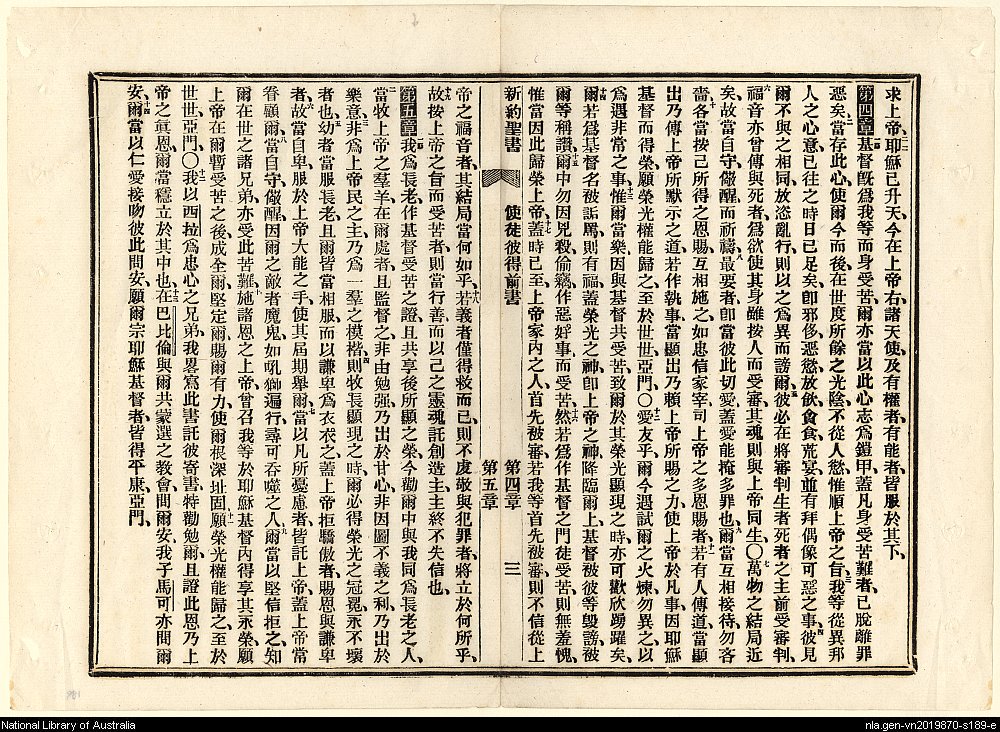 求上帝、耶穌已升天、今在上帝右、諸天使、及有權者、有能者、皆服於其下、
第四章 基督旣爲我等而身受苦、爾亦當以此心志爲鎧甲、蓋凡身受苦難者、已脫離罪
惡矣、當存此心、使爾今而後、在世度所餘之光陰、不從人慾、惟順上帝之旨、我等從異邦
人之心意、已往之時日已足矣、卽邪侈、惡慾、放飲、貪食、荒宴、並有拜偶像可惡之事、彼見
爾不與之相同、放恣亂行、則以之爲異而謗爾、彼必在將審判生者死者之主前受審判、
福音亦曾傳與死者、爲欲使其身雖按人而受審、其魂則與上帝同生、〇萬物之結局近
矣、故當自守、儆醒而祈禱、最要者、卽當彼此切愛、蓋愛能掩多罪也、爾當互相接待勿吝
嗇、各當按己所得之恩賜、互相施之、如忠信家宰、司上帝之多恩賜者、若有人傳道、當顯
出乃傳上帝所默示之道、若作執事、當顯出乃賴上帝所賜之力、使上帝於凡事因耶穌
基督而得榮、願榮光權能歸之、至於世世、亞門、〇愛友乎、爾今遇試爾之火煉、勿異之、以
爲遇非常之事、惟爾當樂、因與基督共受苦、致爾於其榮光顯現之時、亦可歡欣踴躍矣、
爾若爲基督名被詬罵、則有福、蓋榮光之神、卽上帝之神、降臨爾上、基督被彼等毀謗、被
爾等稱讚、爾中勿因兇殺、偷竊、作惡、好事、而受苦、然若爲作基督之門徒受苦、則無羞愧、
惟當因此歸榮上帝、蓋時已至、上帝家內之人、首先被審、若我等首先被審、則不信從上
新約聖書 使徒彼得前書 第四章 第五章 三
帝之福音者、其結局當何如乎、若義者僅得救而已、則不虔敬與犯罪者、將立於何所乎、
故按上帝之旨而受苦者、則當行善、而以己之靈魂、託創造主、主終不失信也、
第五章 我爲長老、作基督受苦之證、且共享後所顯之榮、今勸爾中與我同爲長老之人、
當牧上帝之羣羊在爾處者、且監督之、非由勉强、乃出於甘心、非因圖不義之利、乃出於
樂意、非爲上帝民之主、乃爲一羣之模楷、則牧長顯現之時、爾必得榮光之冠冕、永不壞
者也、幼者當服長老、且爾皆當相服、而以謙卑爲衣衣之、蓋上帝拒驕傲者、賜恩與謙卑
者、故當自卑、服於上帝大能之手、使其屆期舉爾、當以凡所憂慮者、皆託上帝、蓋上帝常
眷顧爾、當自守儆醒、因爾之敵者魔鬼、如吼獅遍行、尋可吞噬之人、爾當以堅信拒之、知
爾在世之諸兄弟、亦受此苦難、施諸恩之上帝、曾召我等於耶穌基督內、得享其永榮、願
上帝在爾暫受苦之後、成全爾、堅定爾、賜爾有力、使爾根深址固、願榮光權能歸之、至於
世世、亞門、〇我以西拉爲忠心之兄弟、我畧寫此書、託彼寄書、特勸勉爾、且證此恩乃上
帝之眞恩、爾當穩立於其中也、在巴比倫與爾共蒙選之敎會、問爾安、我子馬可亦問爾
安、爾當以仁愛接吻、彼此問安、願爾宗耶穌基督者、皆得平康、亞門、
National Library of Australia
nla.gen-vn2019870-s189-e